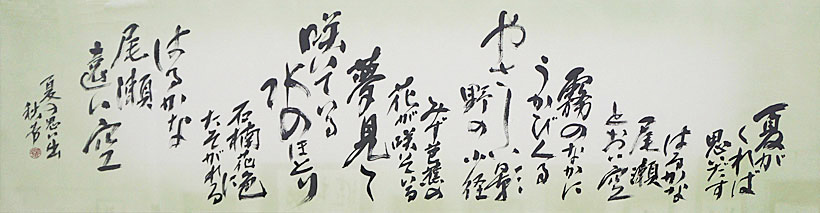 夏が
くれば
思いだす
はるかな
尾瀬
とおい空
霧のなかに
うかびくる
やさしい影
野の小径
みず芭蕉の
花が咲いている
夢見て
咲いている
水のほとり
石楠花色
たそがれる
はるかな
尾瀬
遠い空
夏の思い出